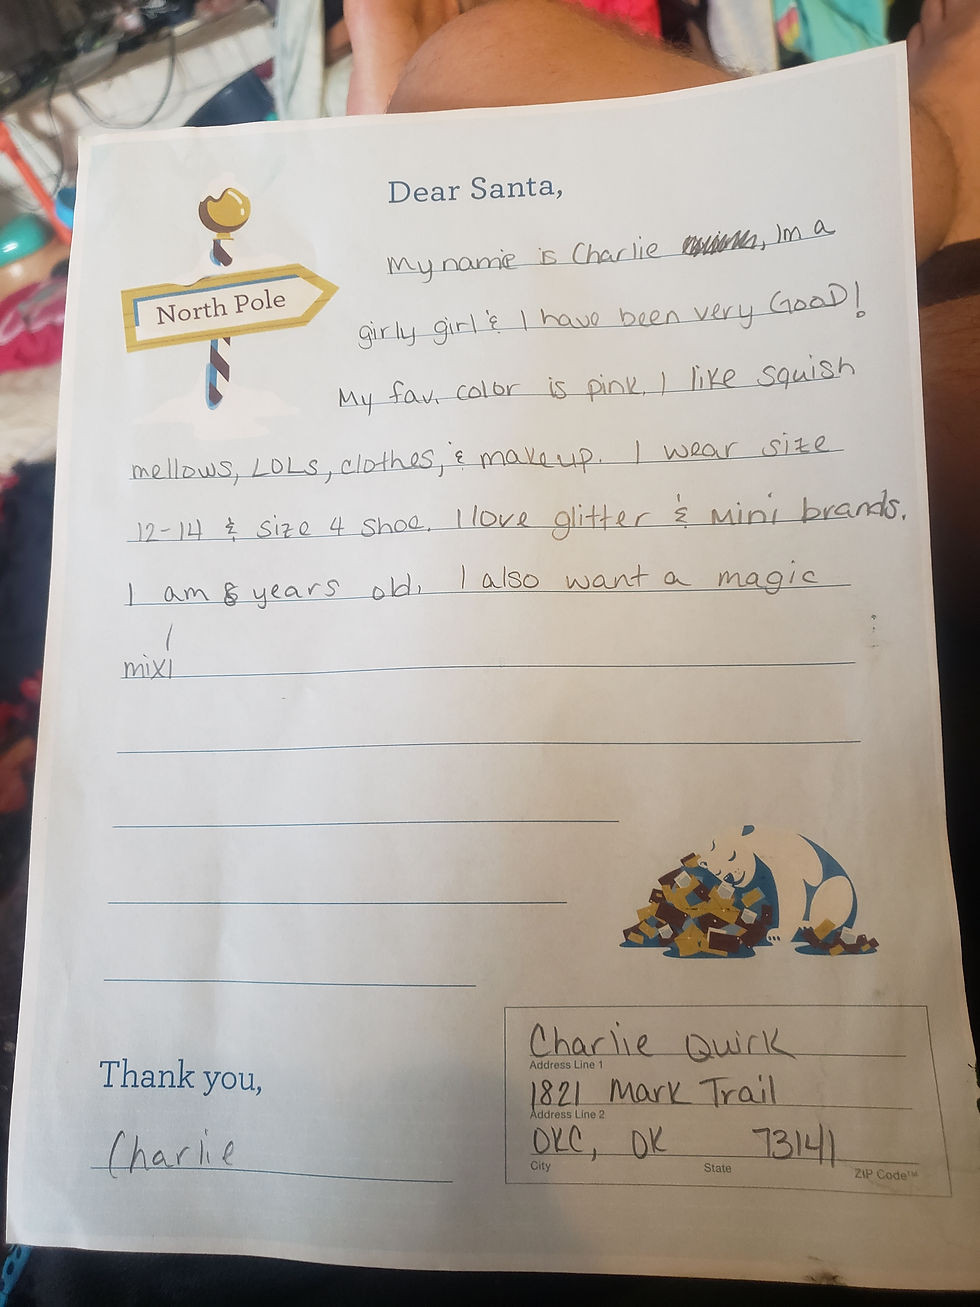 Dear Santa,
My name is Charlie , Im a
North Pole
girly girl & I have been very GooD!
My fav. color is pink. I like squish
mellows, LOLs, clothes, & makeup. I wear size
12-14 & size 4 shoe. I love glitter & mini brands.
I am 8 years old. I also want a magic
mixi
Thank you,
Charlie
Charlie Quirk
Address Line 1
1821 Mark Trail
Address Line 2
OKC, OK 73141
City State ZIP Code™